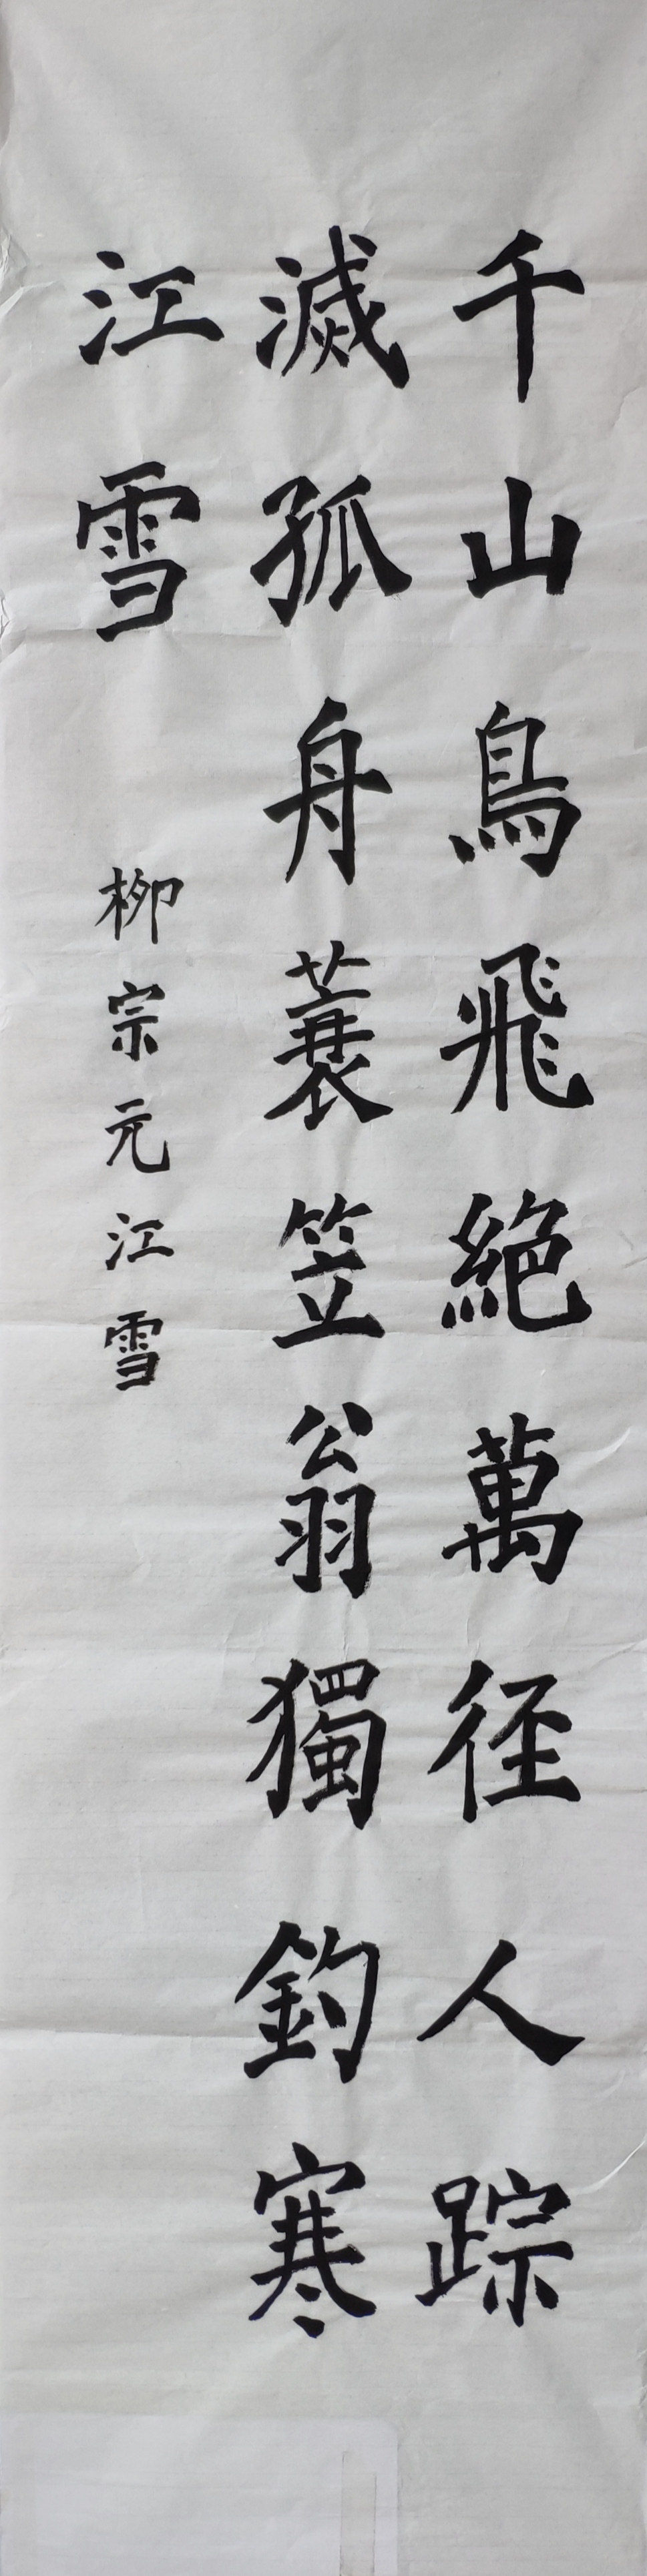 千山鳥飛絶萬径人踪
滅孤舟蓑笠翁獨釣寒
江雪
柳宗元江雪